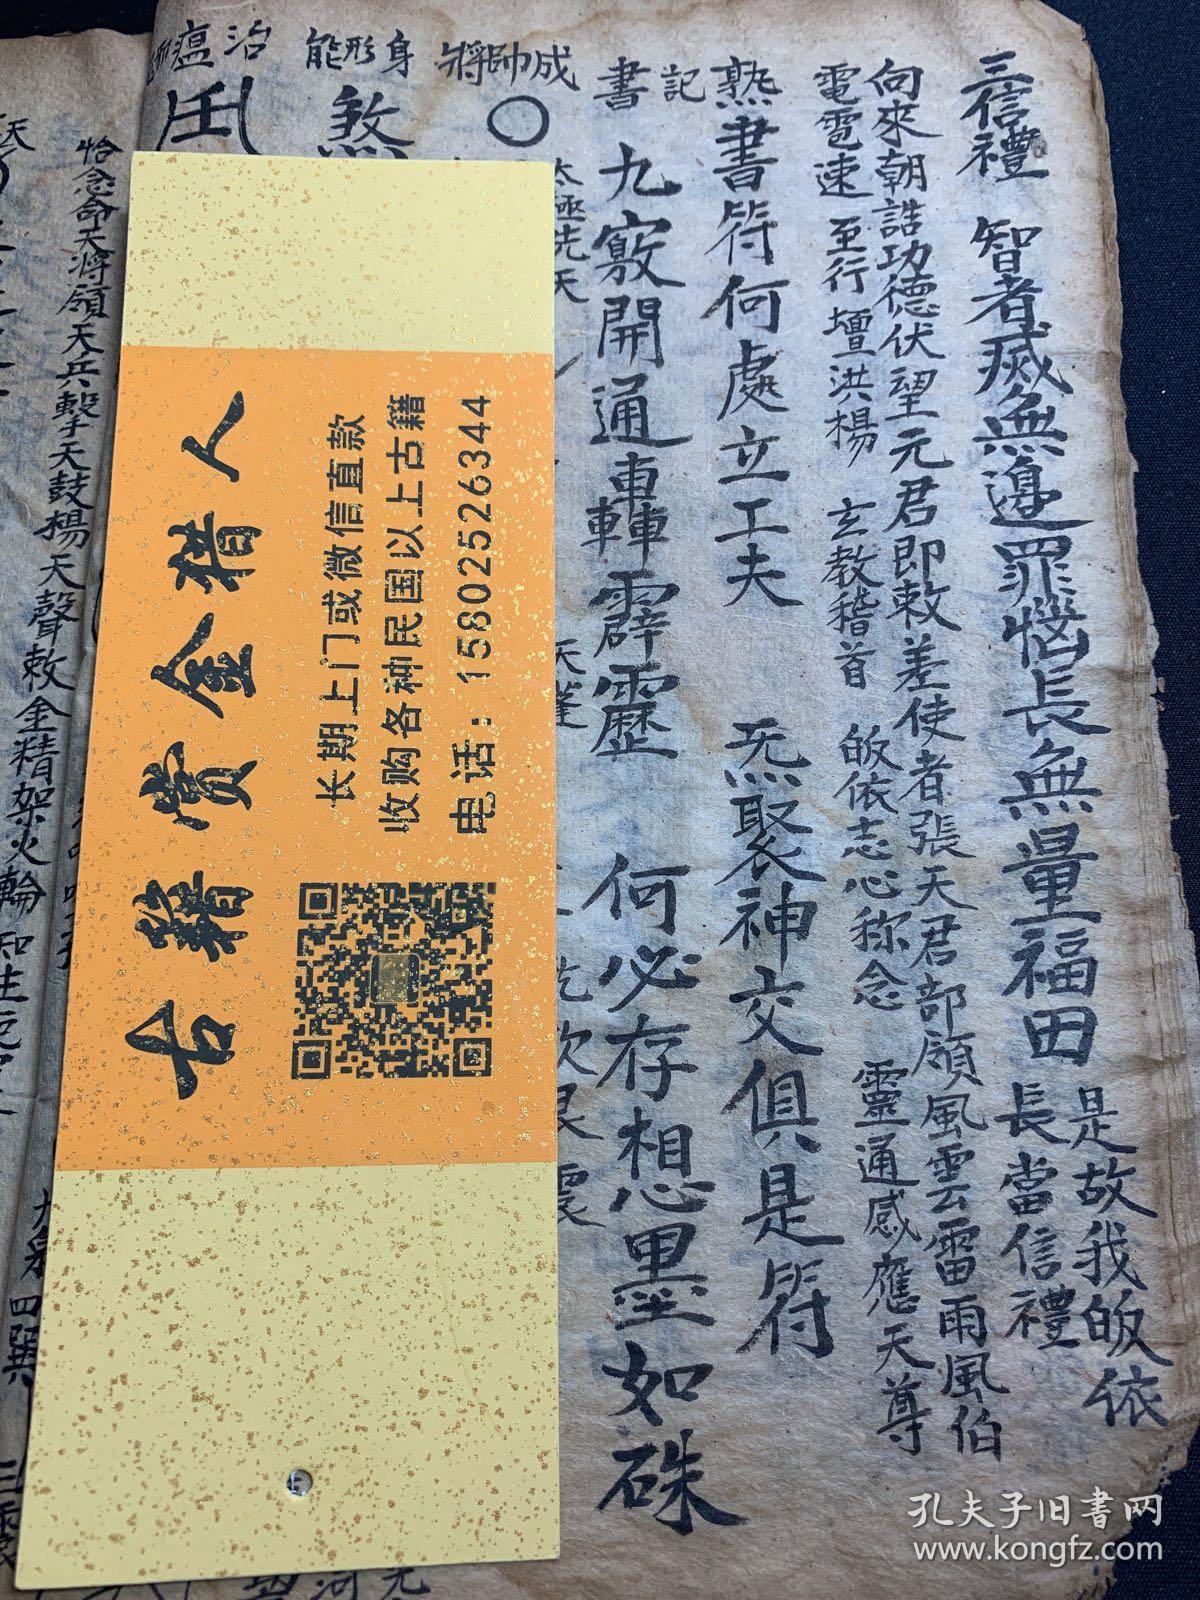 三信禮 智者滅無邊罪惱長無量福田 是故我皈依
長當信禮
向來朝誥功德伏望元君即敕差使者張天君部領風雲雷雨風伯
電雹速至行壇洪楊 玄教稽首 皈依志心称念 靈通感應天尊
熟書符何處立工夫 炁聚神交俱是符
記
書 九竅開通轟霹靂 何必存想墨如硃
成帥將
太極先天
天蓬
身形能
煞
治瘟
恰念命天将領天兵擊天鼓楊天聲敕金精架火輪
古籍赏金猎人
长期上门或微信直款
收购各种民国以上古籍
电话：15802526344
孔夫子旧书网
www.kongfz.com